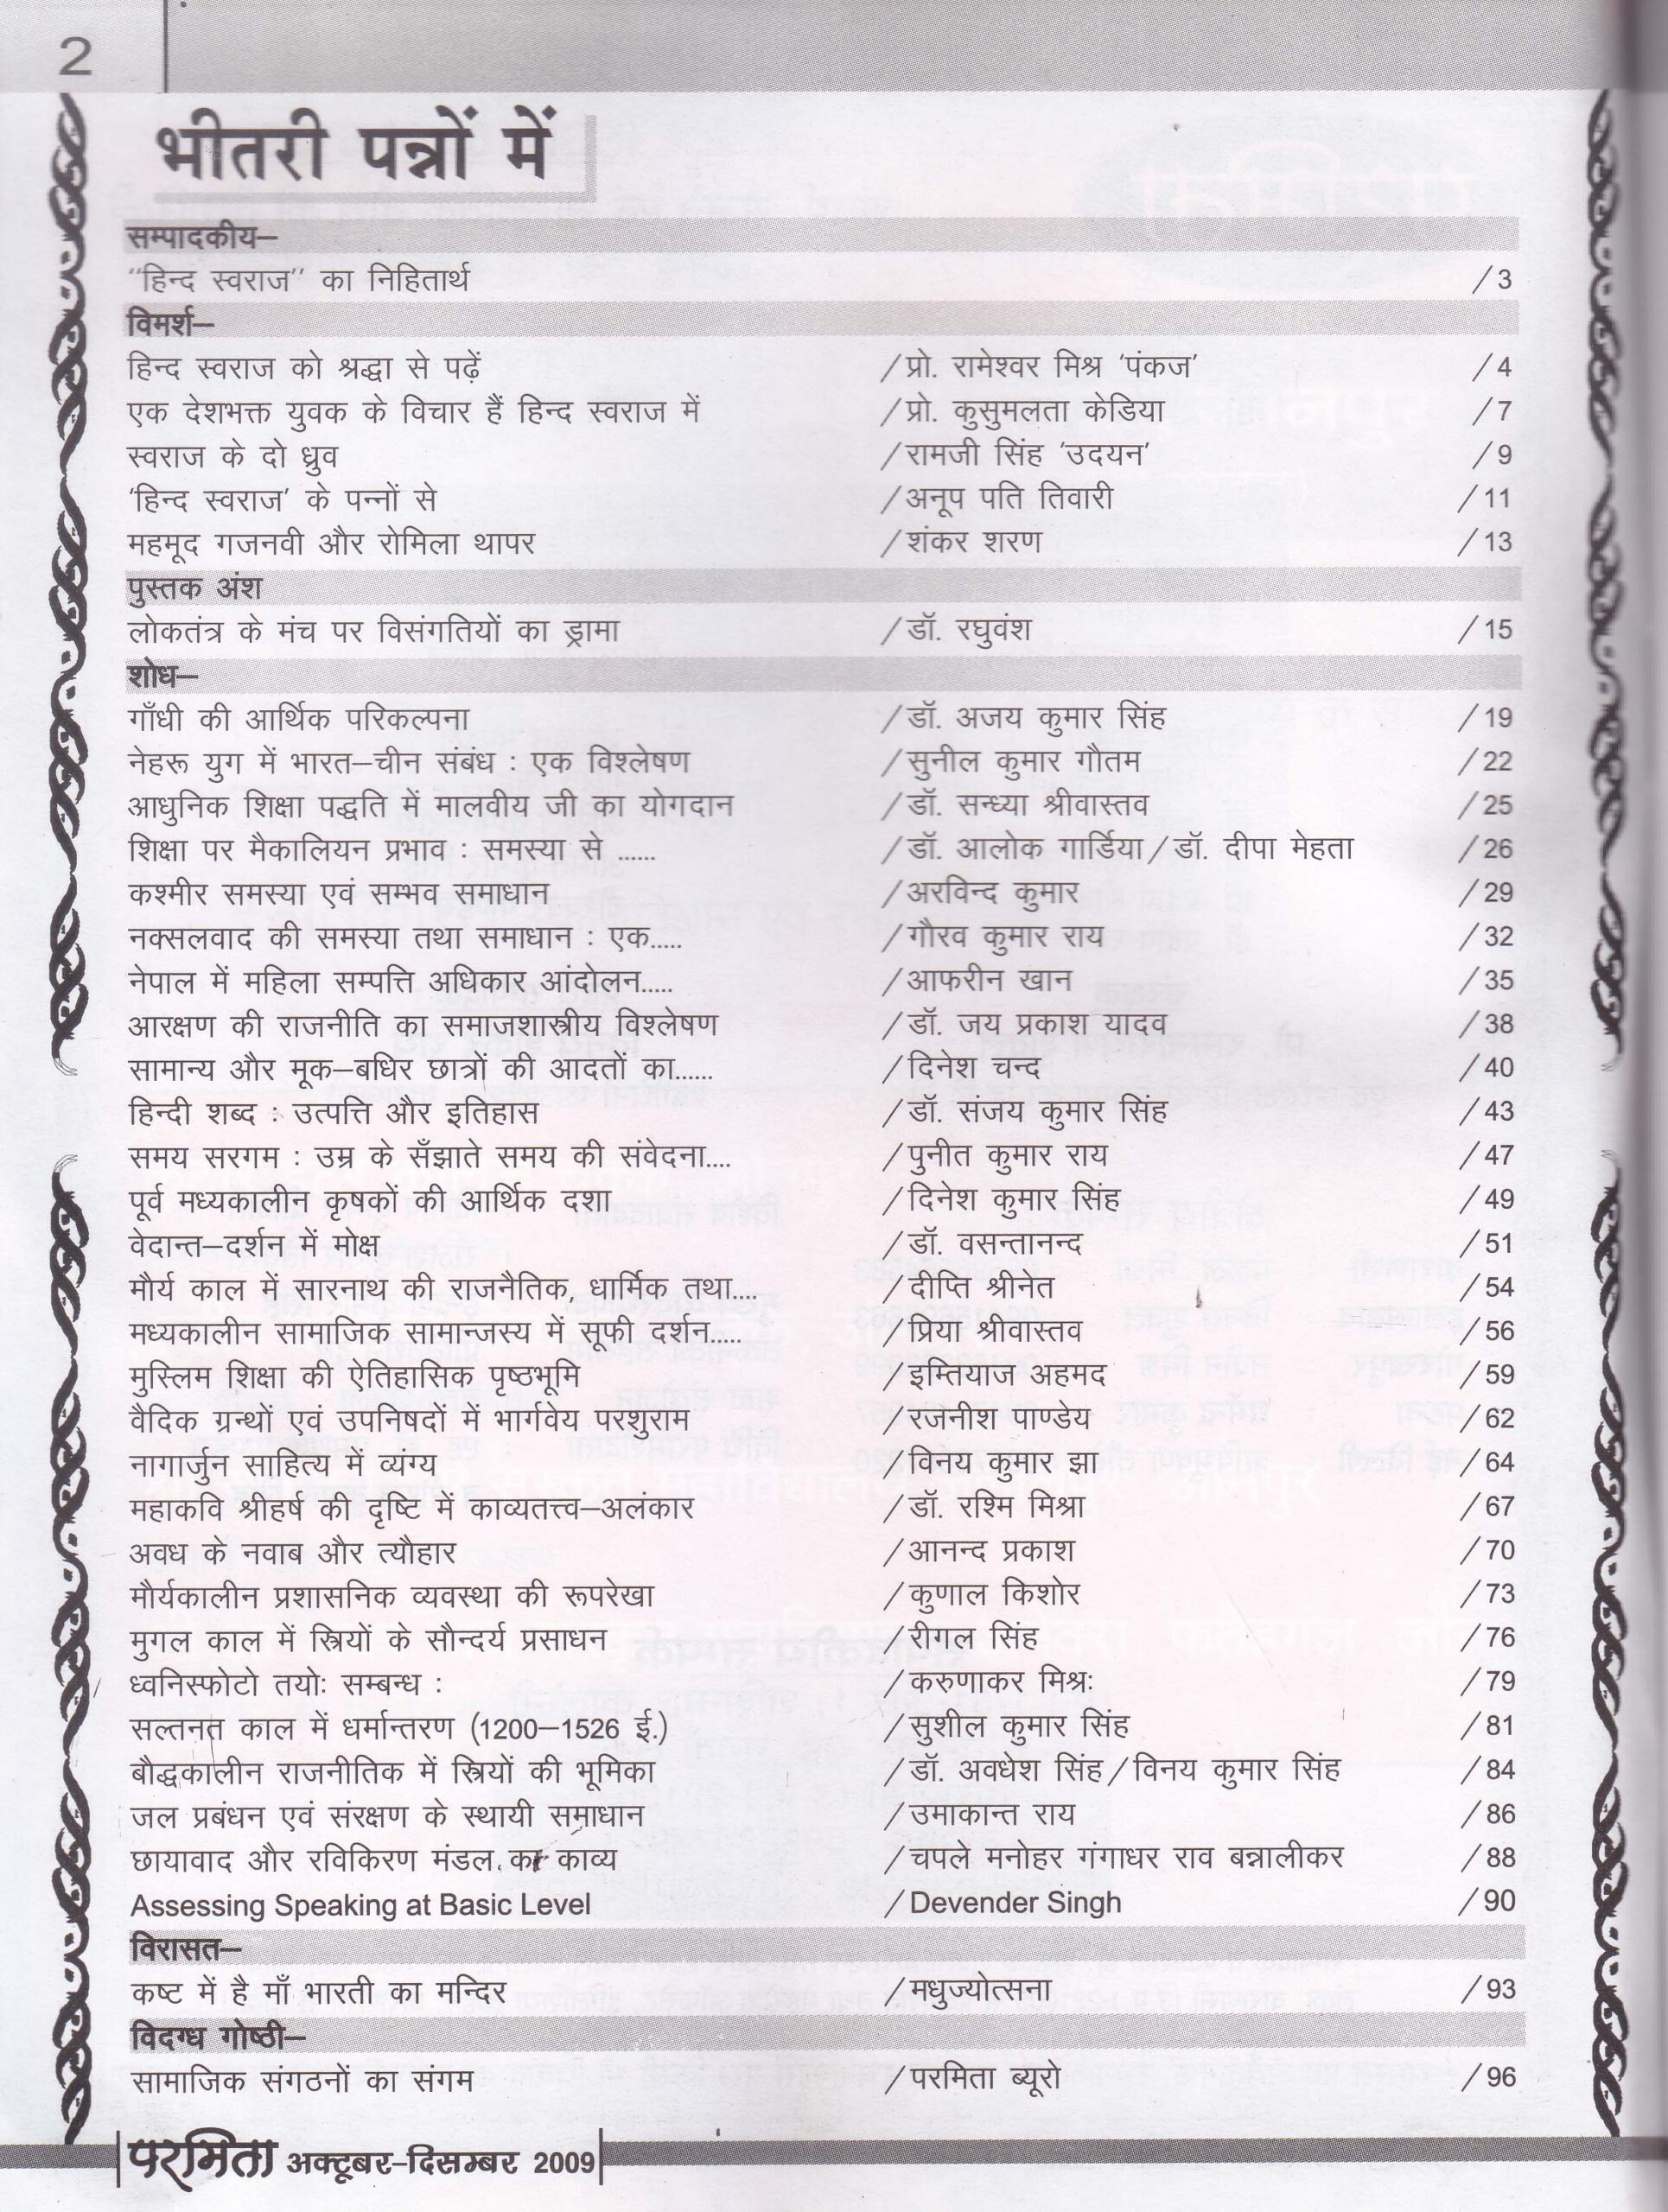 2
भीतरी पन्नों में
सम्पादकीय–
“हिन्द स्वराज” का निहितार्थ /3
विमर्श–
हिन्द स्वराज को श्रद्धा से पढ़ें /प्रो. रामेश्वर मिश्र ‘पंकज’ /4
एक देशभक्त युवक के विचार हैं हिन्द स्वराज में /प्रो. कुसुमलता केडिया /7
स्वराज के दो ध्रुव /रामजी सिंह ‘उदयन’ /9
‘हिन्द स्वराज’ के पन्नों से /अनूप पति तिवारी /11
महमूद गजनवी और रोमिला थापर /शंकर शरण /13
पुस्तक अंश
लोकतंत्र के मंच पर विसंगतियों का ड्रामा /डॉ. रघुवंश /15
शोध–
गाँधी की आर्थिक परिकल्पना /डॉ. अजय कुमार सिंह /19
नेहरू युग में भारत–चीन संबंध : एक विश्लेषण /सुनील कुमार गौतम /22
आधुनिक शिक्षा पद्धति में मालवीय जी का योगदान /डॉ. सन्ध्या श्रीवास्तव /25
शिक्षा पर मैकालियन प्रभाव : समस्या से ...... /डॉ. आलोक गार्डिया/डॉ. दीपा मेहता /26
कश्मीर समस्या एवं सम्भव समाधान /अरविन्द कुमार /29
नक्सलवाद की समस्या तथा समाधान : एक..... /गौरव कुमार राय /32
नेपाल में महिला सम्पत्ति अधिकार आंदोलन..... /आफरीन खान /35
आरक्षण की राजनीति का समाजशास्त्रीय विश्लेषण /डॉ. जय प्रकाश यादव /38
सामान्य और मूक–बधिर छात्रों की आदतों का...... /दिनेश चन्द /40
हिन्दी शब्द : उत्पत्ति और इतिहास /डॉ. संजय कुमार सिंह /43
समय सरगम : उम्र के सँझाते समय की संवेदना.... /पुनीत कुमार राय /47
पूर्व मध्यकालीन कृषकों की आर्थिक दशा /दिनेश कुमार सिंह /49
वेदान्त–दर्शन में मोक्ष /डॉ. वसन्तानन्द /51
मौर्य काल में सारनाथ की राजनैतिक, धार्मिक तथा.... /दीप्ति श्रीनेत /54
मध्यकालीन सामाजिक सामान्जस्य में सूफी दर्शन..... /प्रिया श्रीवास्तव /56
मुस्लिम शिक्षा की ऐतिहासिक पृष्ठभूमि /इम्तियाज अहमद /59
वैदिक ग्रन्थों एवं उपनिषदों में भार्गवेय परशुराम /रजनीश पाण्डेय /62
नागार्जुन साहित्य में व्यंग्य /विनय कुमार झा /64
महाकवि श्रीहर्ष की दृष्टि में काव्यतत्त्व–अलंकार /डॉ. रश्मि मिश्रा /67
अवध के नवाब और त्यौहार /आनन्द प्रकाश /70
मौर्यकालीन प्रशासनिक व्यवस्था की रूपरेखा /कुणाल किशोर /73
मुगल काल में स्त्रियों के सौन्दर्य प्रसाधन /रीगल सिंह /76
ध्वनिस्फोटो तयोः सम्बन्ध : /करुणाकर मिश्रः /79
सल्तनत काल में धर्मान्तरण (1200–1526 ई.) /सुशील कुमार सिंह /81
बौद्धकालीन राजनीतिक में स्त्रियों की भूमिका /डॉ. अवधेश सिंह/विनय कुमार सिंह /84
जल प्रबंधन एवं संरक्षण के स्थायी समाधान /उमाकान्त राय /86
छायावाद और रविकिरण मंडल का काव्य /चपले मनोहर गंगाधर राव बन्नालीकर /88
Assessing Speaking at Basic Level /Devender Singh /90
विरासत–
कष्ट में है माँ भारती का मन्दिर /मधुज्योत्सना /93
विदग्ध गोष्ठी–
सामाजिक संगठनों का संगम /परमिता ब्यूरो /96
परमिता अक्टूबर–दिसम्बर 2009